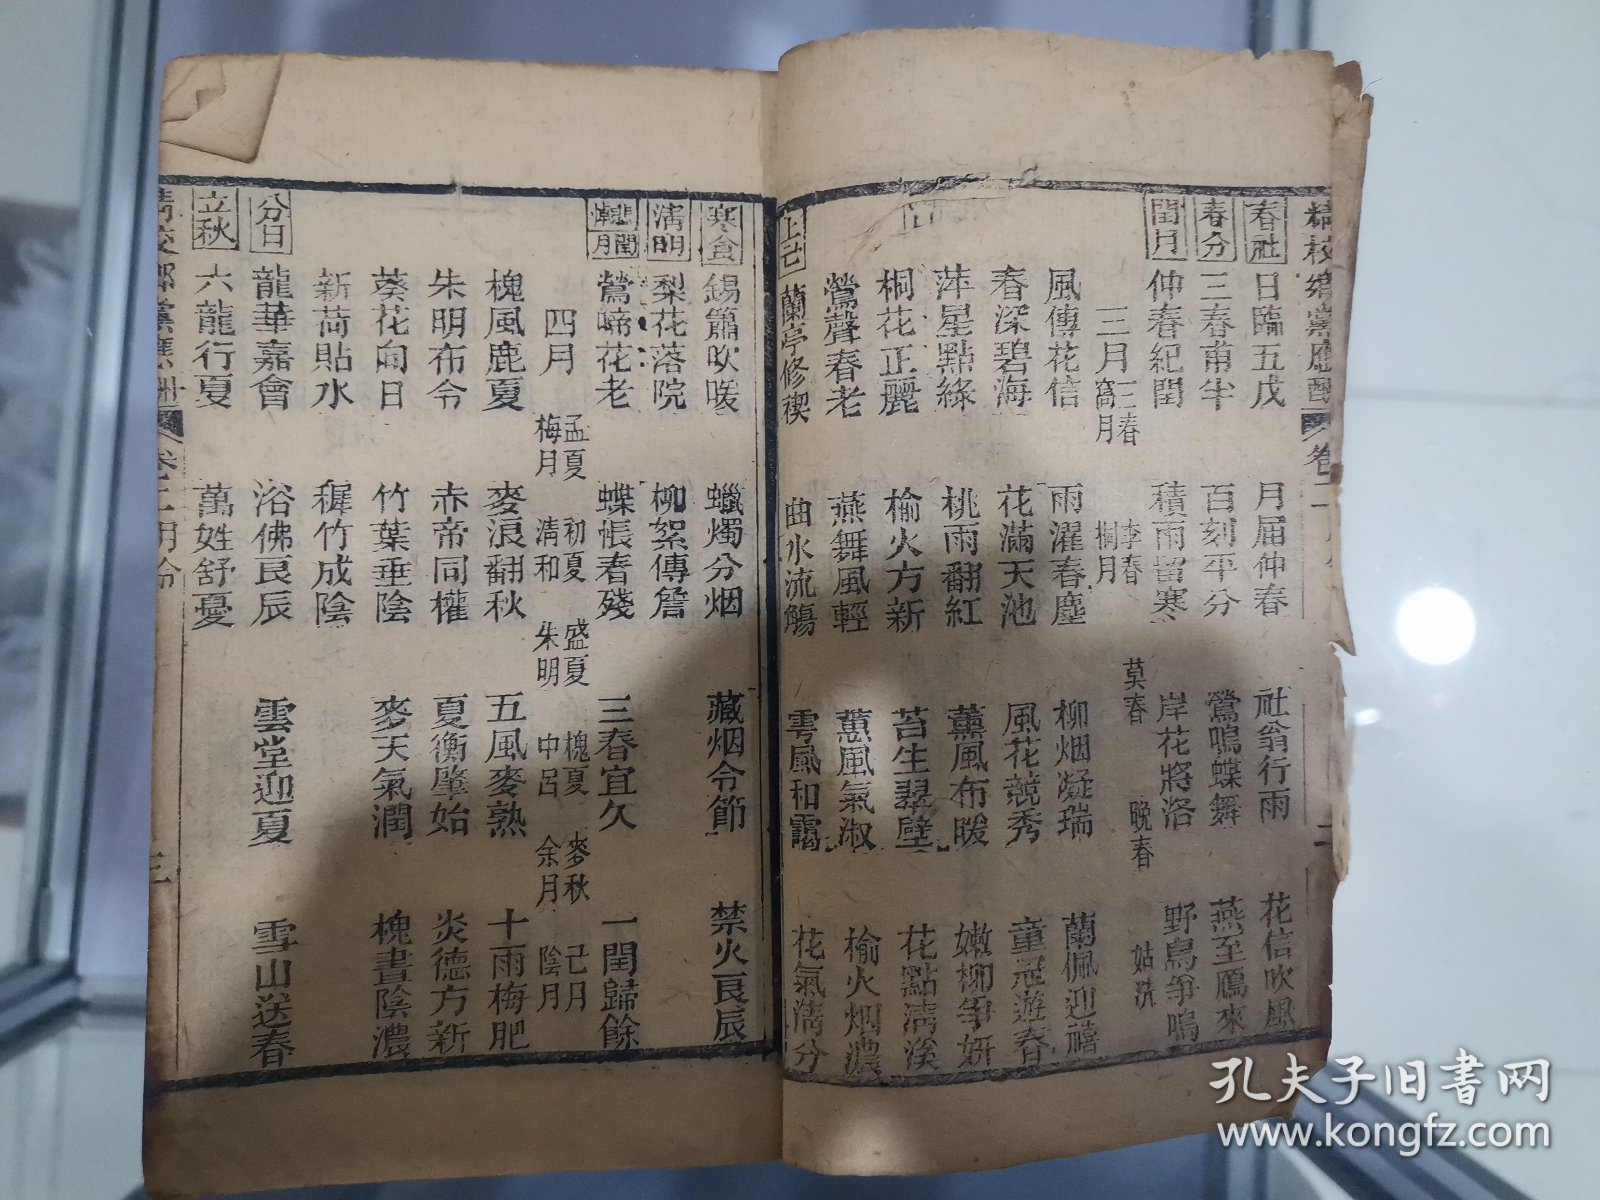 精校鄉黨應酬 卷二 二
春社 日臨五戊 月届仲春 社翁行雨 花信吹風
春分 三春甫半 百刻平分 鶯鳴蝶舞 燕至鴈來
閏月 仲春紀閏 積雨留寒 岸花將落 野鳥爭鳴
三月 三春 窩月 李春 桐月 莫春 晚春 姑洗
風傳花信 雨濯春塵 柳烟凝瑞 蘭佩迎禧
春深碧海 花滿天池 風花競秀 童冠遊春
萍星點綠 桃雨翻紅 薰風布暖 嫩柳爭妍
桐花正麗 榆火方新 苔生翠壁 花點清溪
鶯聲春老 燕舞風輕 蕙風氣淑 榆火烟濃
上巳 蘭亭修禊 曲水流觴 雩風和靄 花氣清分
寒食 錫簫吹暖 蠟燭分烟 藏烟令節 禁火良辰
清明 梨花落院 柳絮傳詹
閏月 鶯啼花老 蝶帳春殘 三春宜久 一閏歸餘
四月 孟夏 梅月 初夏 清和 盛夏 朱明 槐夏 中呂 麥秋 余月 己月 陰月
槐風鹿夏 麥浪翻秋 五風麥熟 十雨梅肥
朱明布令 赤帝同權 夏衡肇始 炎德方新
葵花向日 竹葉垂陰 麥天氣潤 槐晝陰濃
新荷貼水 穉竹成陰
分日 龍華嘉會 浴佛良辰 雲堂迎夏 雪山送春
立秋 六龍行夏 萬姓舒憂
精校鄉黨應酬 卷二 月令 三
孔夫子旧書网
www.kongfz.com